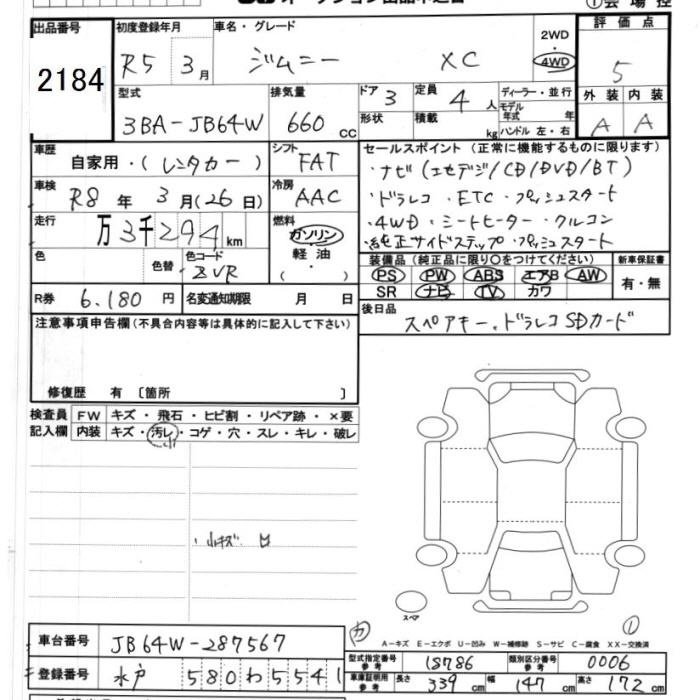 出品番号 初度登録年月 車名・グレード 2WD・4WD 評価点
2184 R5 3月 ジムニー XC 5
型式 排気量 ドア 3 定員 4人 ディーラー・並行 外装 内装
3BA-JB64W 660cc 形状 積載 kg モデル年式 年式 ハンドル 左・右 A A
車歴 自家用・(レンタカー) シフト FAT セールスポイント(正常に機能するものに限ります)
車検 R8年3月(26日) 冷房 AAC ・ナビ(1セグデジ/CD/DVD/BT)
・ドラレコ・ETC・プッシュスタート
走行 万3千294km 燃料 ガソリン・軽油・( ) ・4WD・シートヒーター・クルコン
・純正サイドステップ・プッシュスタート
色 色替 色コード ZVR 装備品(純正品に限り○をつけてください) 新車保証書
PS PW ABS エアB AW 有・無
SR ナビ TV カワ
R券 6,180円 名変通知期限 月 日
後日品 スペアキー、ドラレコSDカード
注意事項申告欄(不具合内容等は具体的に記入して下さい)
修復歴 有〔箇所 〕
検査員記入欄 FW キズ・飛石・ヒビ割・リペア跡・×要
内装 キズ・汚レ・コゲ・穴・スレ・キレ・破レ
小
・小キズ
スペア
カ ①
A-キズ E-エクボ U-凹み W-補修跡 S-サビ C-腐食 XX-交換済
車台番号 JB64W-287567
型式指定番号参考 18786 類別区分番号参考 0006
登録番号 水戸 580 わ 5541
車庫証明用参考 長さ 339cm 幅 147cm 高さ 172cm